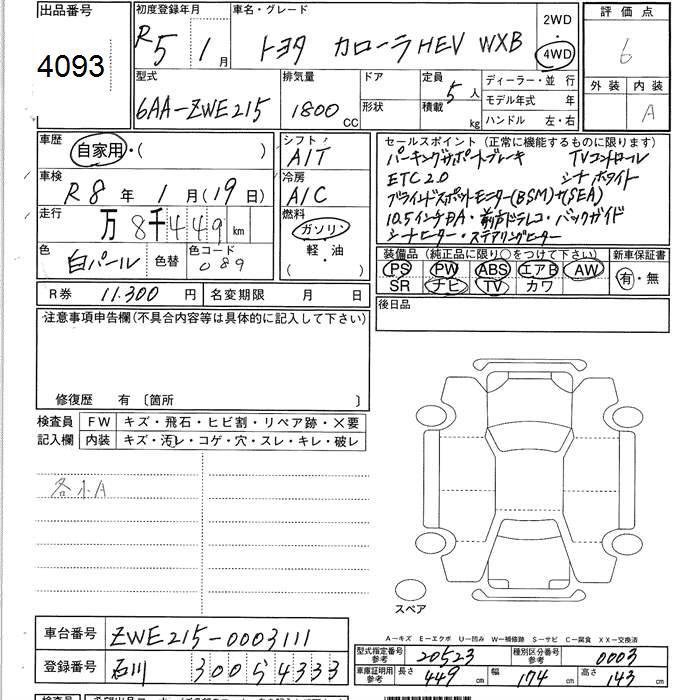 出品番号
4093
初度登録年月
R5 1月
車名・グレード
トヨタ カローラHEV WXB
2WD
4WD
評価点
6
外装 内装
A
型式
6AA-ZWE215
排気量
1800 CC
ドア
形状
定員
5人
積載
kg
ディーラー・並 行
モデル年式 年
ハンドル 左・右
車歴
自家用・( )
シフト
A/T
車検
R8年 1月(19日)
冷房
A/C
走行
万8千449km
燃料
ガソリン
軽・油
( )
色
白パール
色替
色コード
089
セールスポイント (正常に機能するものに限ります)
パーキングサポートブレーキ TVコントロール
ETC2.0 シナホワイト
ブラインドスポットモニター(BSM)サ(SEA)
10.5インチDA・前方ドラレコ・バックガイド
シートヒーター・ステアリングヒーター
装備品 (純正品に限り○をつけて下さい)
PS PW ABS エアB AW
SR ナビ TV カワ
新車保証書
有・無
R券 11.300 円
名変期限 月 日
後日品
注意事項申告欄(不具合内容等は具体的に記入して下さい)
修復歴 有 〔箇所 〕
検査員
記入欄
FW キズ・飛石・ヒビ割・リペア跡・×要
内装 キズ・汚レ・コゲ・穴・スレ・キレ・破レ
各小A
スペア
車台番号 ZWE215-0003111
登録番号 石川 300 ら 4333
A―キズ E―エクボ U―凹み W―補修跡 S―サビ C―腐食 XX―交換済
型式指定番号
参考
20523
種別区分番号
参考
0003
車庫証明用
参考
長さ 449 cm
幅 174 cm
高さ 143 cm